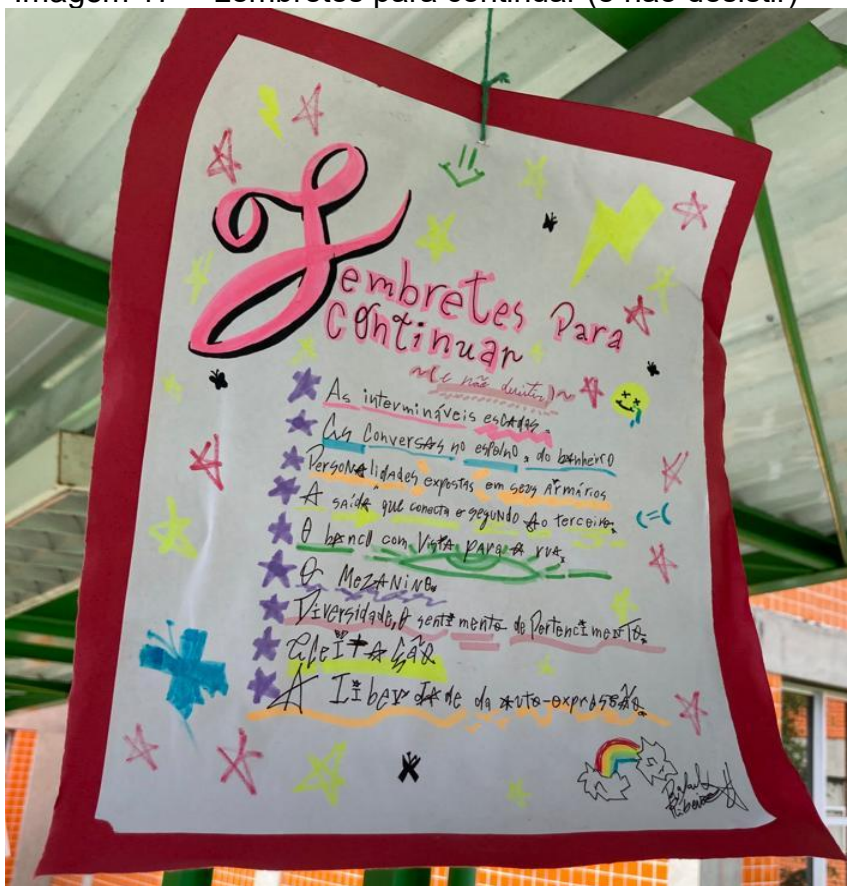 Imagem 17 – Lembretes para continuar (e não desistir)
Lembretes Para
Continuar
~(e não desistir)~
As intermináveis escadas.
As Conversas no espelho, do banheiro
Personalidades expostas em seus Armários
A saída que conecta o segundo Ao terceiro.
O banco com Vista para a rua.
O Mezanino.
Diversidade, O sentimento de Pertencimento.
Aceitação
A Liberdade da auto-expressão.
Ribeiro